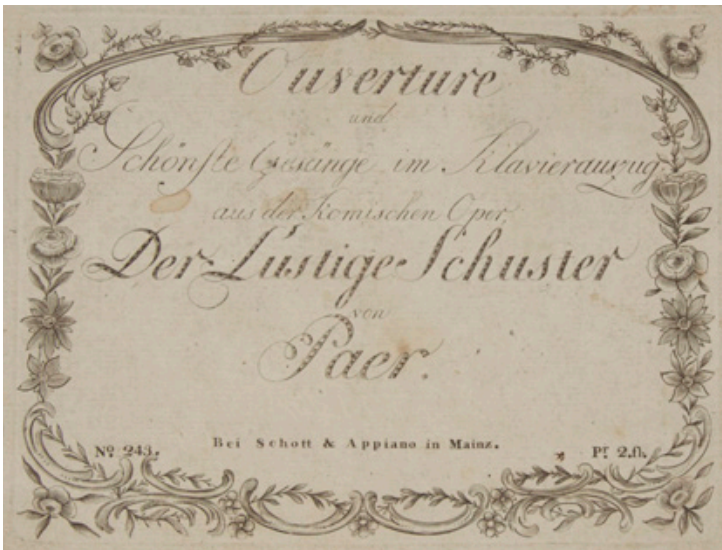 Ouverture
und
Schönste Gesänge im Klavierauszug
aus der komischen Oper
Der Lustige Schuster
von
Paer.
Nº 243. Bei Schott & Appiano in Mainz. Pr. 2.fl.